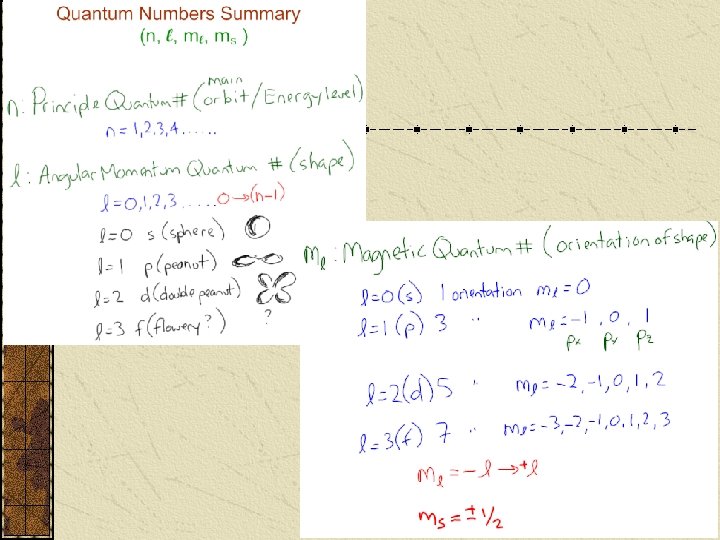 Quantum Numbers Summary
(n, ℓ, mℓ, ms )
n: Principle Quantum # (main orbit/Energy level)
n=1,2,3,4......
ℓ: Angular Momentum Quantum # (shape)
ℓ=0,1,2,3...... 0→(n-1)
ℓ=0 s (sphere)
ℓ=1 p (peanut)
ℓ=2 d (double peanut)
ℓ=3 f (flowery?) ?
mℓ: Magnetic Quantum # (orientation of shape)
ℓ=0(s) 1 orientation mℓ=0
ℓ=1(p) 3 " mℓ=-1, 0, 1
px py pz
ℓ=2(d) 5 " mℓ=-2,-1,0,1,2
ℓ=3(f) 7 " mℓ=-3,-2,-1,0,1,2,3
mℓ=-ℓ→+ℓ
ms=±1/2